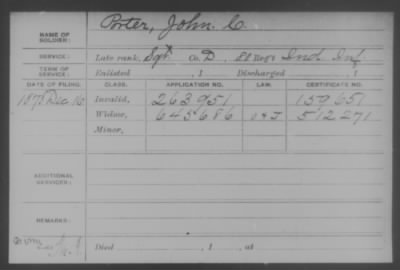 NAME OF SOLDIER: Porter, John. C.
SERVICE: Late rank, Sgt. Co. D, Reg't Ind. Inf
TERM OF SERVICE: Enlisted , 1 Discharged , 1
DATE OF FILING. CLASS. APPLICATION NO. LAW. CERTIFICATE NO.
1878 Dec. 16 Invalid, 263951 159651
Widow, 645686 512271
Minor,
ADDITIONAL SERVICES:
REMARKS:
Died , 1 , at